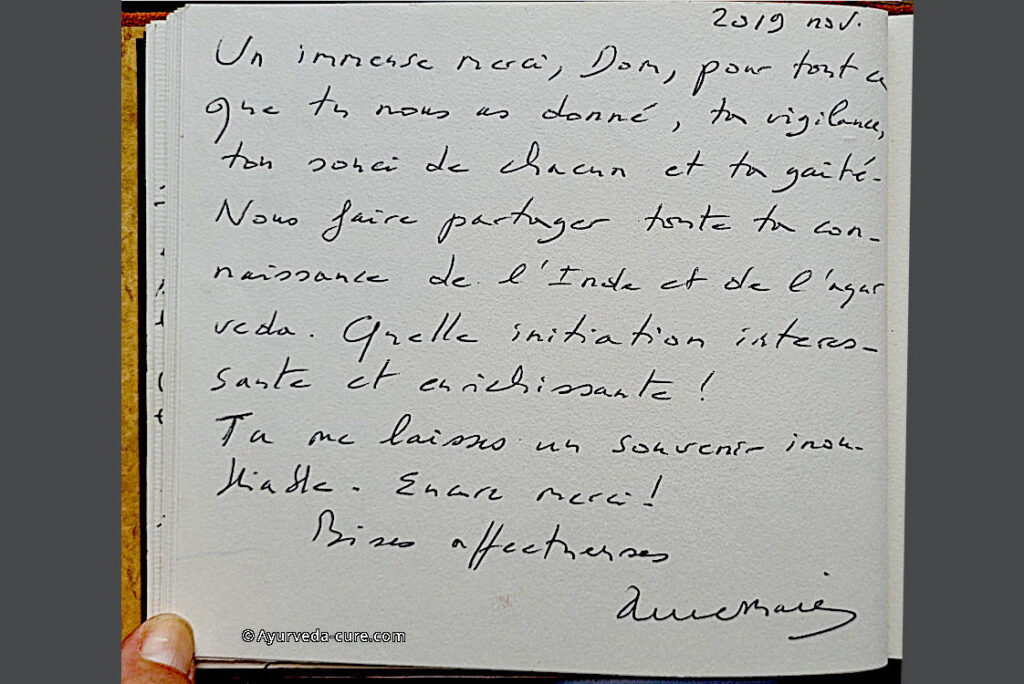 2019 nov.
Un immense merci, Dom, pour tout ce
que tu nous as donné, ta vigilance,
ton souci de chacun et ta gaité.
Nous faire partager toute ta con-
naissance de l'Inde et de l'ayur
veda. Quelle initiation intéres-
sante et enrichissante !
Tu me laisses un souvenir inou-
bliable. Encore merci !
Bises affectueuses
Annemarie
©Ayurveda-cure.com